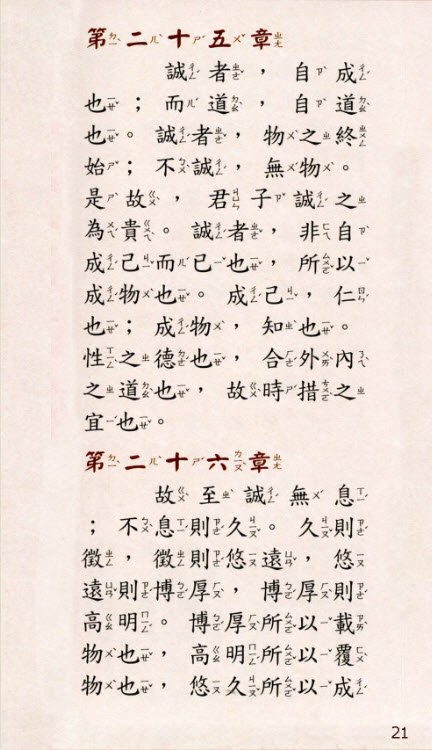 第二十五章
誠者，自成
也；而道，自道
也。誠者，物之終
始；不誠，無物。
是故，君子誠之
為貴。誠者，非自
成己而已也，所以
成物也。成己，仁
也；成物，知也。
性之德也，合外內
之道也，故時措之
宜也。
第二十六章
故至誠無息
；不息則久。久則
徵，徵則悠遠，悠
遠則博厚，博厚則
高明。博厚所以載
物也，高明所以覆
物也，悠久所以成
21